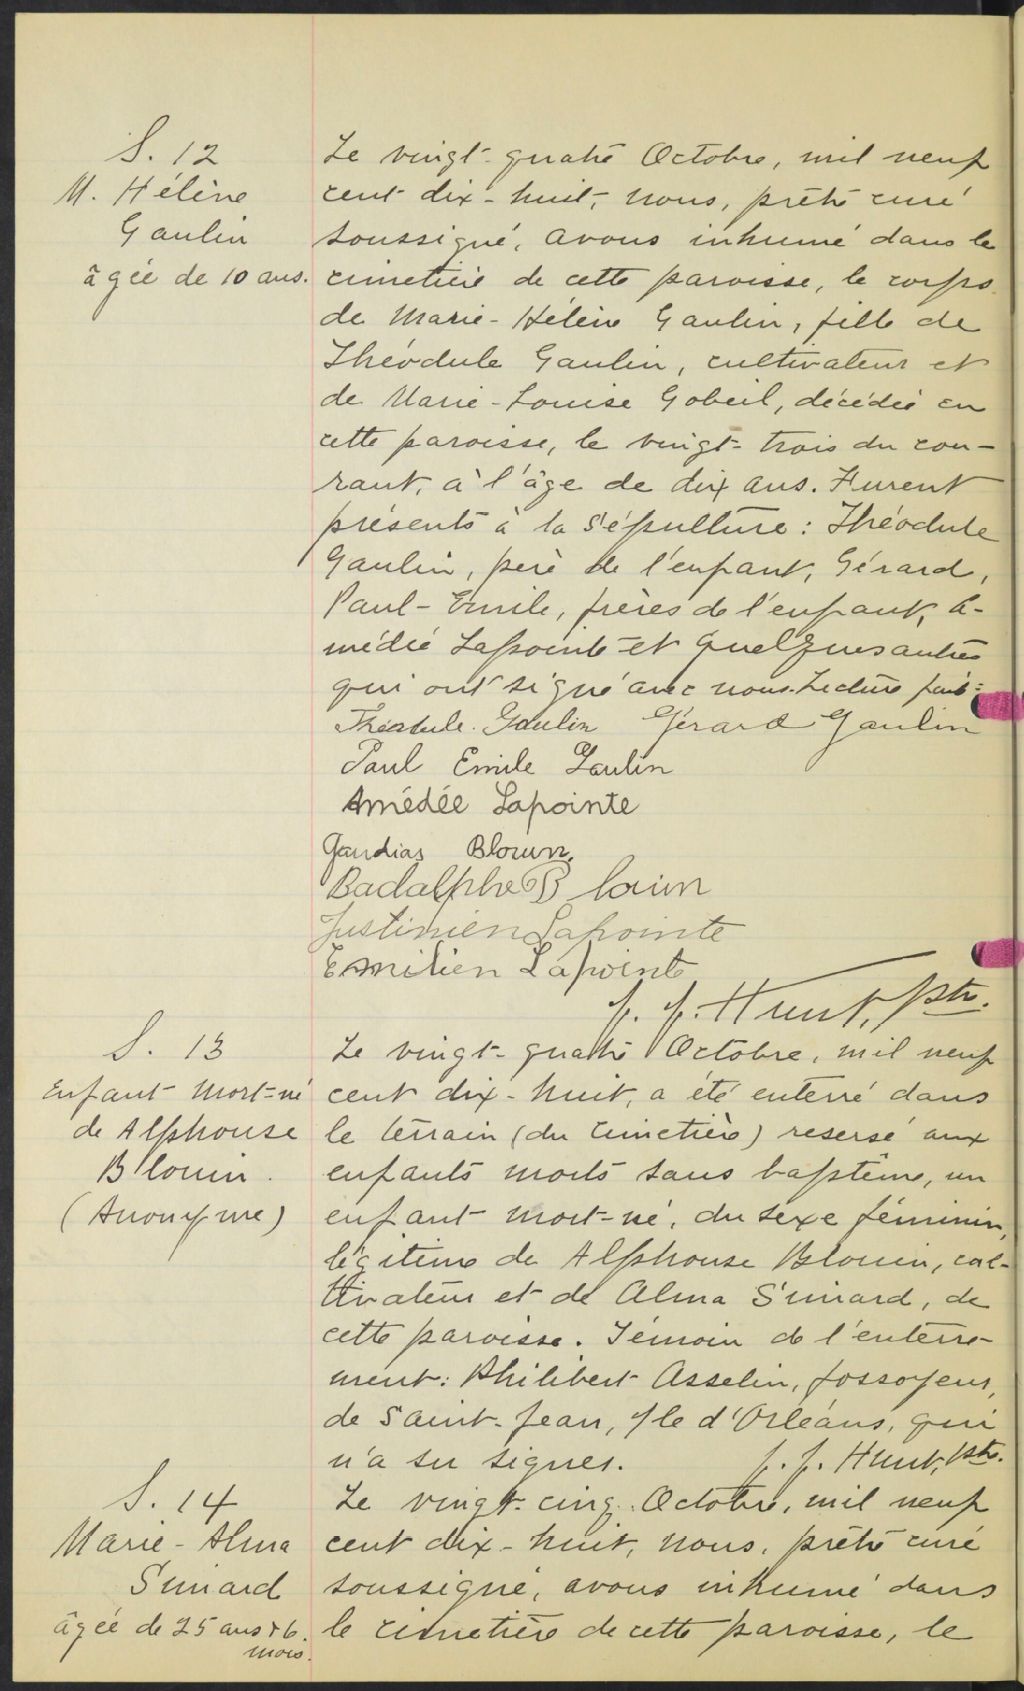 S. 12
M. Hélène
Gaulin
âgée de 10 ans.
Le vingt-quatre Octobre, mil neuf
cent dix-huit, nous, prêtre curé
soussigné, avons inhumé dans le
cimetière de cette paroisse, le corps
de Marie-Hélène Gaulin, fille de
Théodule Gaulin, cultivateur et
de Marie-Louise Gobeil, décédée en
cette paroisse, le vingt-trois du cou-
rant, à l'âge de dix ans. Furent
présents à la sépulture: Théodule
Gaulin, père de l'enfant, Gérard,
Paul-Emile, frères de l'enfant, A-
médée Lapointe et quelques autres
qui ont signé avec nous. Lecture faite:
Théodule Gaulin Gérard Gaulin
Paul Emile Gaulin
Amédée Lapointe
Gaudias Blouin
Badalphe Blouin
Justinien Lapointe
Emilien Lapointe
J. J. Hunt, Ptre.
S. 13
Enfant Mort-né
de Alphonse
Blouin.
(Anonyme)
Le vingt-quatre Octobre, mil neuf
cent dix-huit, a été enterré dans
le terrain (du cimetière) reservé aux
enfants morts sans baptême, un
enfant mort-né, du sexe féminin,
légitime de Alphonse Blouin, cul-
tivateur et de Alma Simard, de
cette paroisse. Témoin de l'enterre-
ment: Philibert Asselin, fossoyeur,
de Saint-Jean, Ile d'Orléans, qui
n'a su signer. J. J. Hunt, Ptre.
S. 14
Marie-Alma
Simard
âgée de 25 ans & 6
mois.
Le vingt-cinq Octobre, mil neuf
cent dix-huit, nous, prêtre curé
soussigné, avons inhumé dans
le cimetière de cette paroisse, le